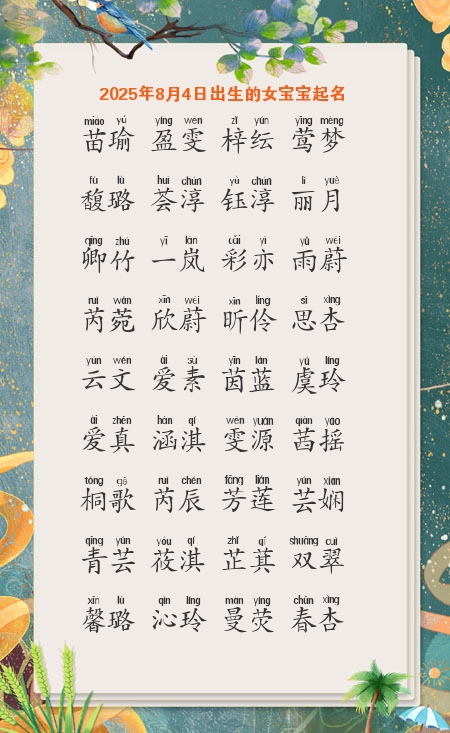 2025年8月4日出生的女宝宝起名
miáo yú yíng wén zǐ yún yīng mèng
苗瑜 盈雯 梓纭 莺梦
fù lù huì chún yù chún lì yuè
馥璐 荟淳 钰淳 丽月
qīng zhú yī lán cǎi yì yǔ wèi
卿竹 一岚 彩亦 雨蔚
ruì wǎn xīn wèi xīn líng sī xìng
芮菀 欣蔚 昕伶 思杏
yún wén ài sù yīn lán yú líng
云文 爱素 茵蓝 虞玲
ài zhēn hán qí wén yuán qiàn yáo
爱真 涵淇 雯源 茜摇
tóng gē ruì chén fāng lián yún xián
桐歌 芮辰 芳莲 芸娴
qīng yún yóu qí zhǐ qí shuāng cuì
青芸 莜淇 芷萁 双翠
xīn lù qìn líng màn yíng chūn xìng
馨璐 沁玲 曼荧 春杏